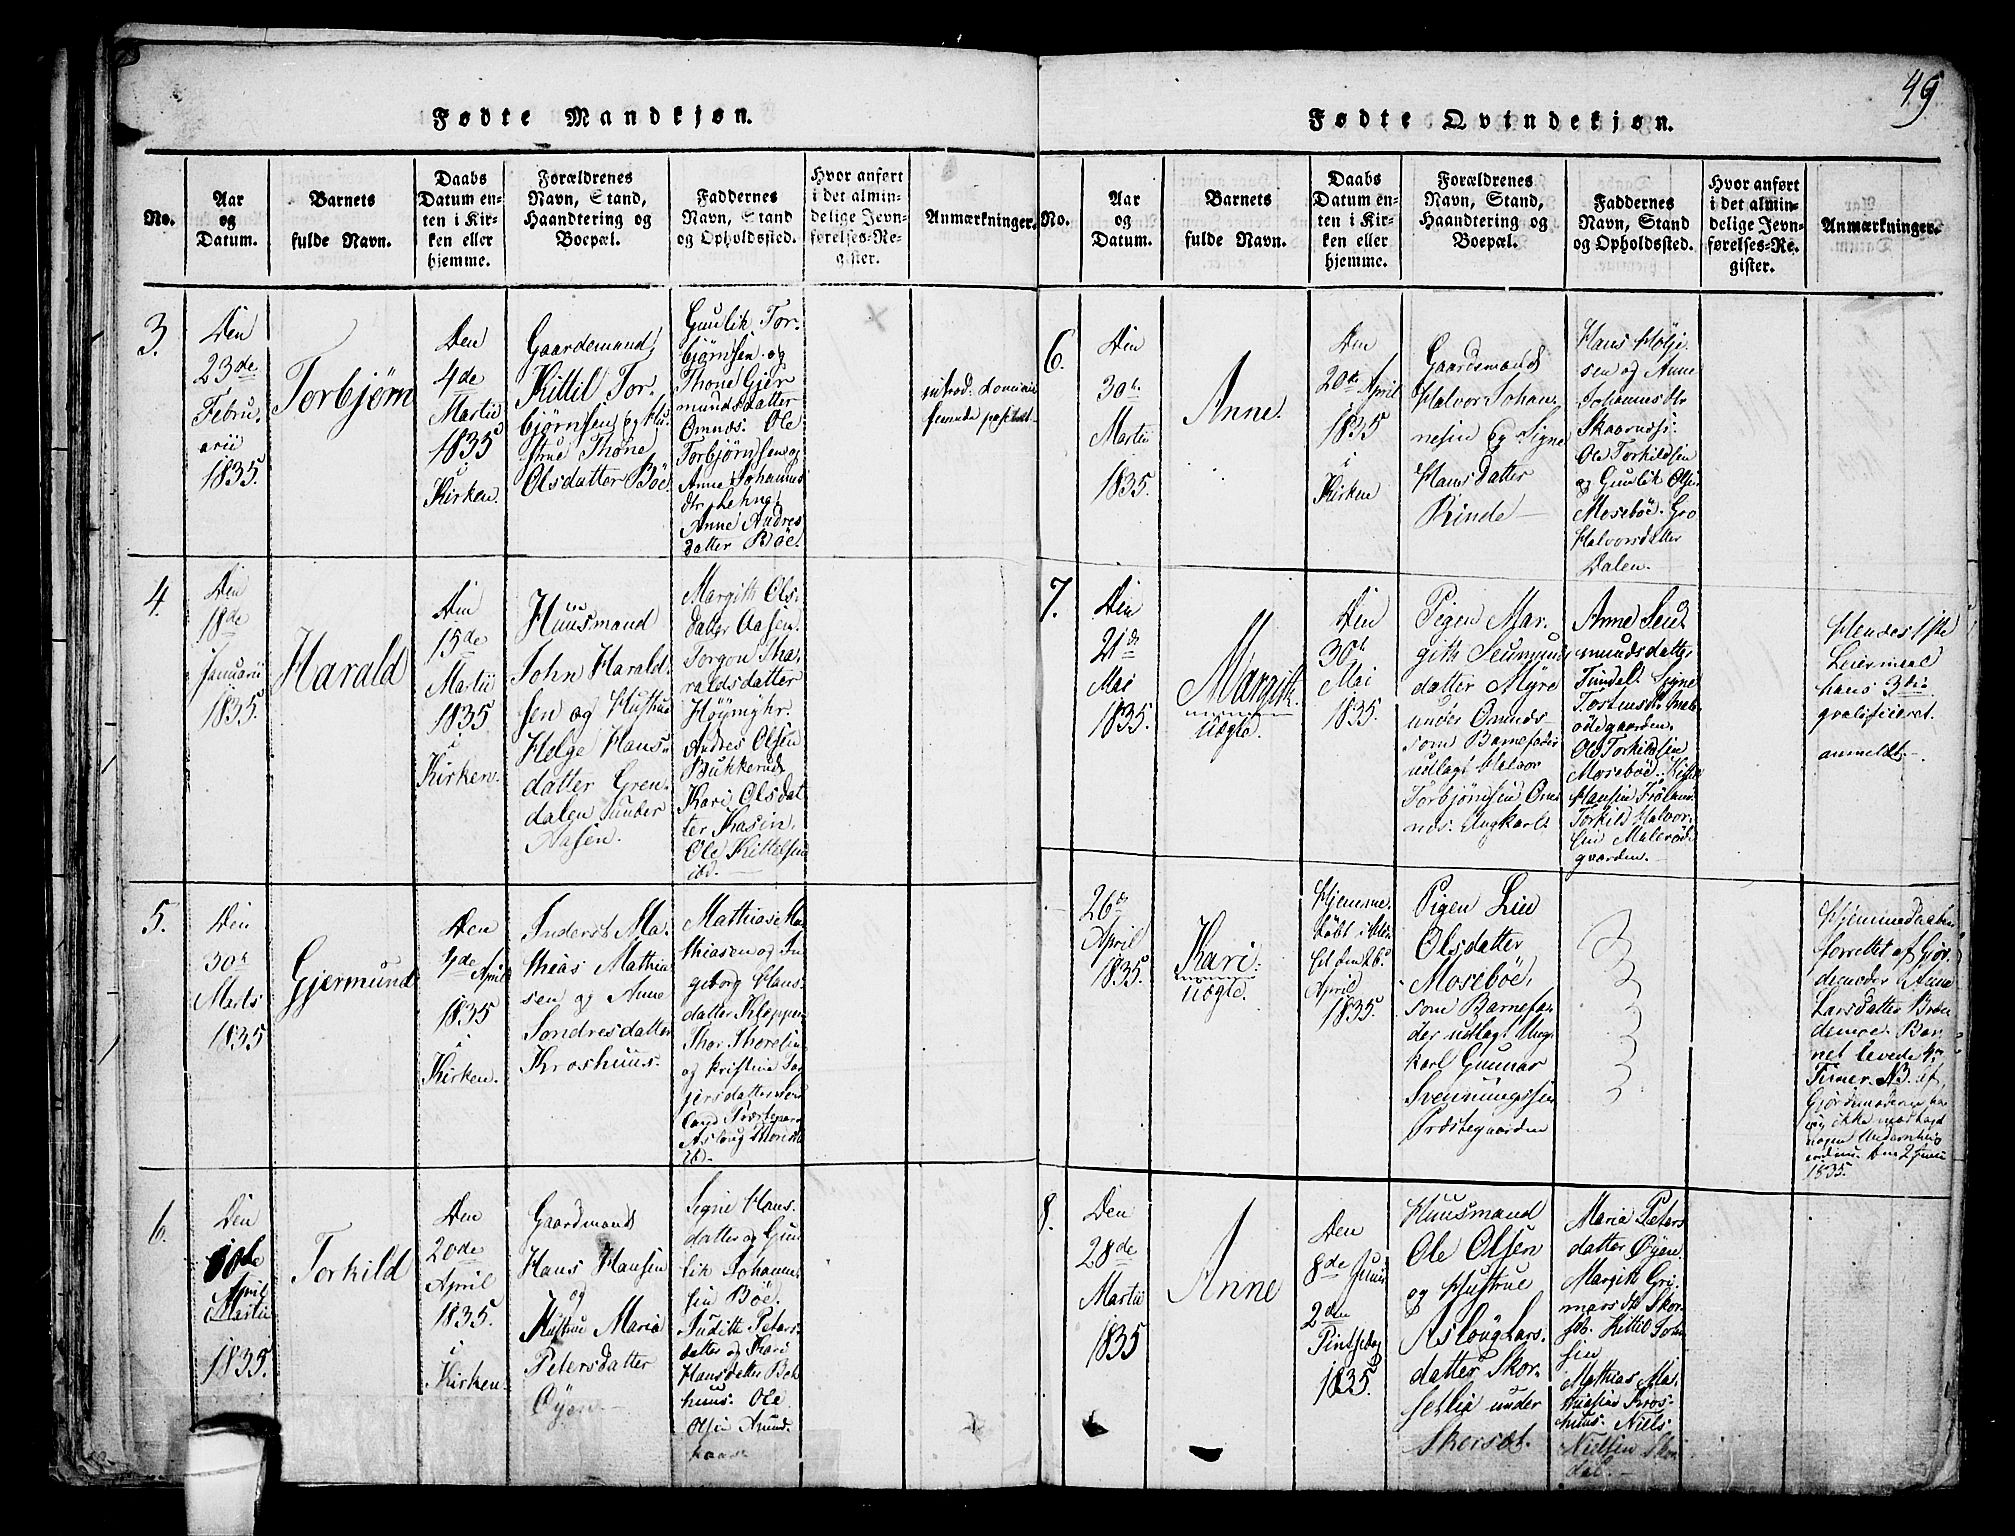 49
Fødte Mandkjøn.
No.
Aar
og
Datum.
Barnets
fulde Navn.
Daabs
Datum en-
ten i Kir-
ken eller
hjemme.
Forældrenes
Navn, Stand,
Haandtering og
Boepæl.
Faddernes
Navn, Stand
og Opholdssted.
Hvor anført
i det almin-
delige Jevn-
førelses-Re-
gister.
Anmærkninger.
3.
Den
23de
Febru
arii
1835.
Torbjørn
Den
4de
Martii
1835
i
Kirken.
Gaardemand
Kittil Tor-
bjørnsen og Hu-
strue Thone
Olsdatter Böe
Guulik Tor-
bjørnsen og
Thone Gjer
mundsdatter
Omnæs. Ole
Torbjørnsen og
Anne Johannes
dtr
Anne Andres
datter Böe.
introd:
4.
Den
18de
Januarii
1835.
Harald
Den
15de
Martii
1835
i
Kirken.
Huusmand
John Harald-
sen og Hustrue
Helge Hans-
datter Gren-
dalen under
Aasen.
Margith Ols-
datter Aasen.
Torgon Ha-
raldsdatter
Andres Olsen
Bukkerud
Kari Olsdat
ter
Ole Kittelsen
ibd.
5.
Den
30te
Marts
1835
Gjermund
Den
4de April
1835
i
Kirken.
Inderst Ma-
thias Mathia
sen og Anne
Sondresdatter
Kroshuus.
Mathias Ma
thiasen og In
geborg Hans-
datter Kloppen
Thor
og Kristine Tor
jersdatter
Asloug
ib.
6.
Den
April
Martii
1835.
Torkild
Den
20de
April
1835.
i
Kirken.
Gaardmand
Hans Hansen
og
Hustrue Maria
Petersdatter
Öyen.
Signe Hans-
datter og Guu
lik Johannes
sen Böe.
Judith Peters-
datter og Kari
Hansdatter Bek
huus. Ole
Olsen
Fødte Qvindekjøn.
No.
Aar
og
Datum.
Barnets
fulde Navn.
Daabs
Datum en-
ten i Kir-
ken eller
hjemme.
Forældrenes
Navn, Stand,
Haandtering og
Boepæl.
Faddernes
Navn, Stand
og Opholdssted.
Hvor anført
i det almin-
delige Jevn-
førelses-Re-
gister.
Anmærkninger.
6.
Den
30te
Martii
1835.
Anne.
Den
20de April
1835
i
Kirken
Gaardsmand
Halvor Johan
nesen og Signe
Hansdatter
Rinde
Hans Hølje
sen og Anne
Johannesdtr
Ole Torkildsen
og Guulik Ols
Mosebøe. Gro
Halvorsdatter
Dalen.
7.
Den
21de
Mai
1835.
Margith.
Uægte.
Den
30te
Mai
1835.
Pigen Mar-
gith Seumun
datter Myre
under Omnæs
som Barnefader
udlagt Halvor
Torbjørnsen Om
næs. Ungkarl
Anne Seu
mundsdatter
Tindel. Signe
Tostensdtr
ödegaarden.
Ole Torkildsen
Mosebøe.
Hansen
Torkild Halvor-
sen
gaarden.
Hendes 1ste
Leiermaal
hans 3die
qvalificeret.
anmeldt.
26de
April
1835.
Kari
Uægte.
Hjemme-
döbt
den 26de
April
1835.
Pigen Liv
Olsdatter
Mosebøe,
som Barnefa-
der udlagt Ung-
karl Gunnar
Svenningssen
Præstegaarden
Hjemmedaaben
forrettet af Gjor
demoder Anne
Larsdatter
Bar
net levede
Timer. NB.
Gjordemoderen har
ikke modtaget
nogen
Den 2 Juni
1835.
8.
Den
28de
Martii
1835
Anne
Den
8de Junii
2den
Pintsedag
1835.
Huusmand
Ole Olsen
og Hustrue
Asloug Lars-
datter Skor-
setlia under
Skorset.
Maria Peters
datter Øyen
Margith Gri-
marsdtr Skor-
set. Kittil John
sen
Mathias Ma-
thiasen Kros-
huus. Niels
Nielsen Skor
dal.